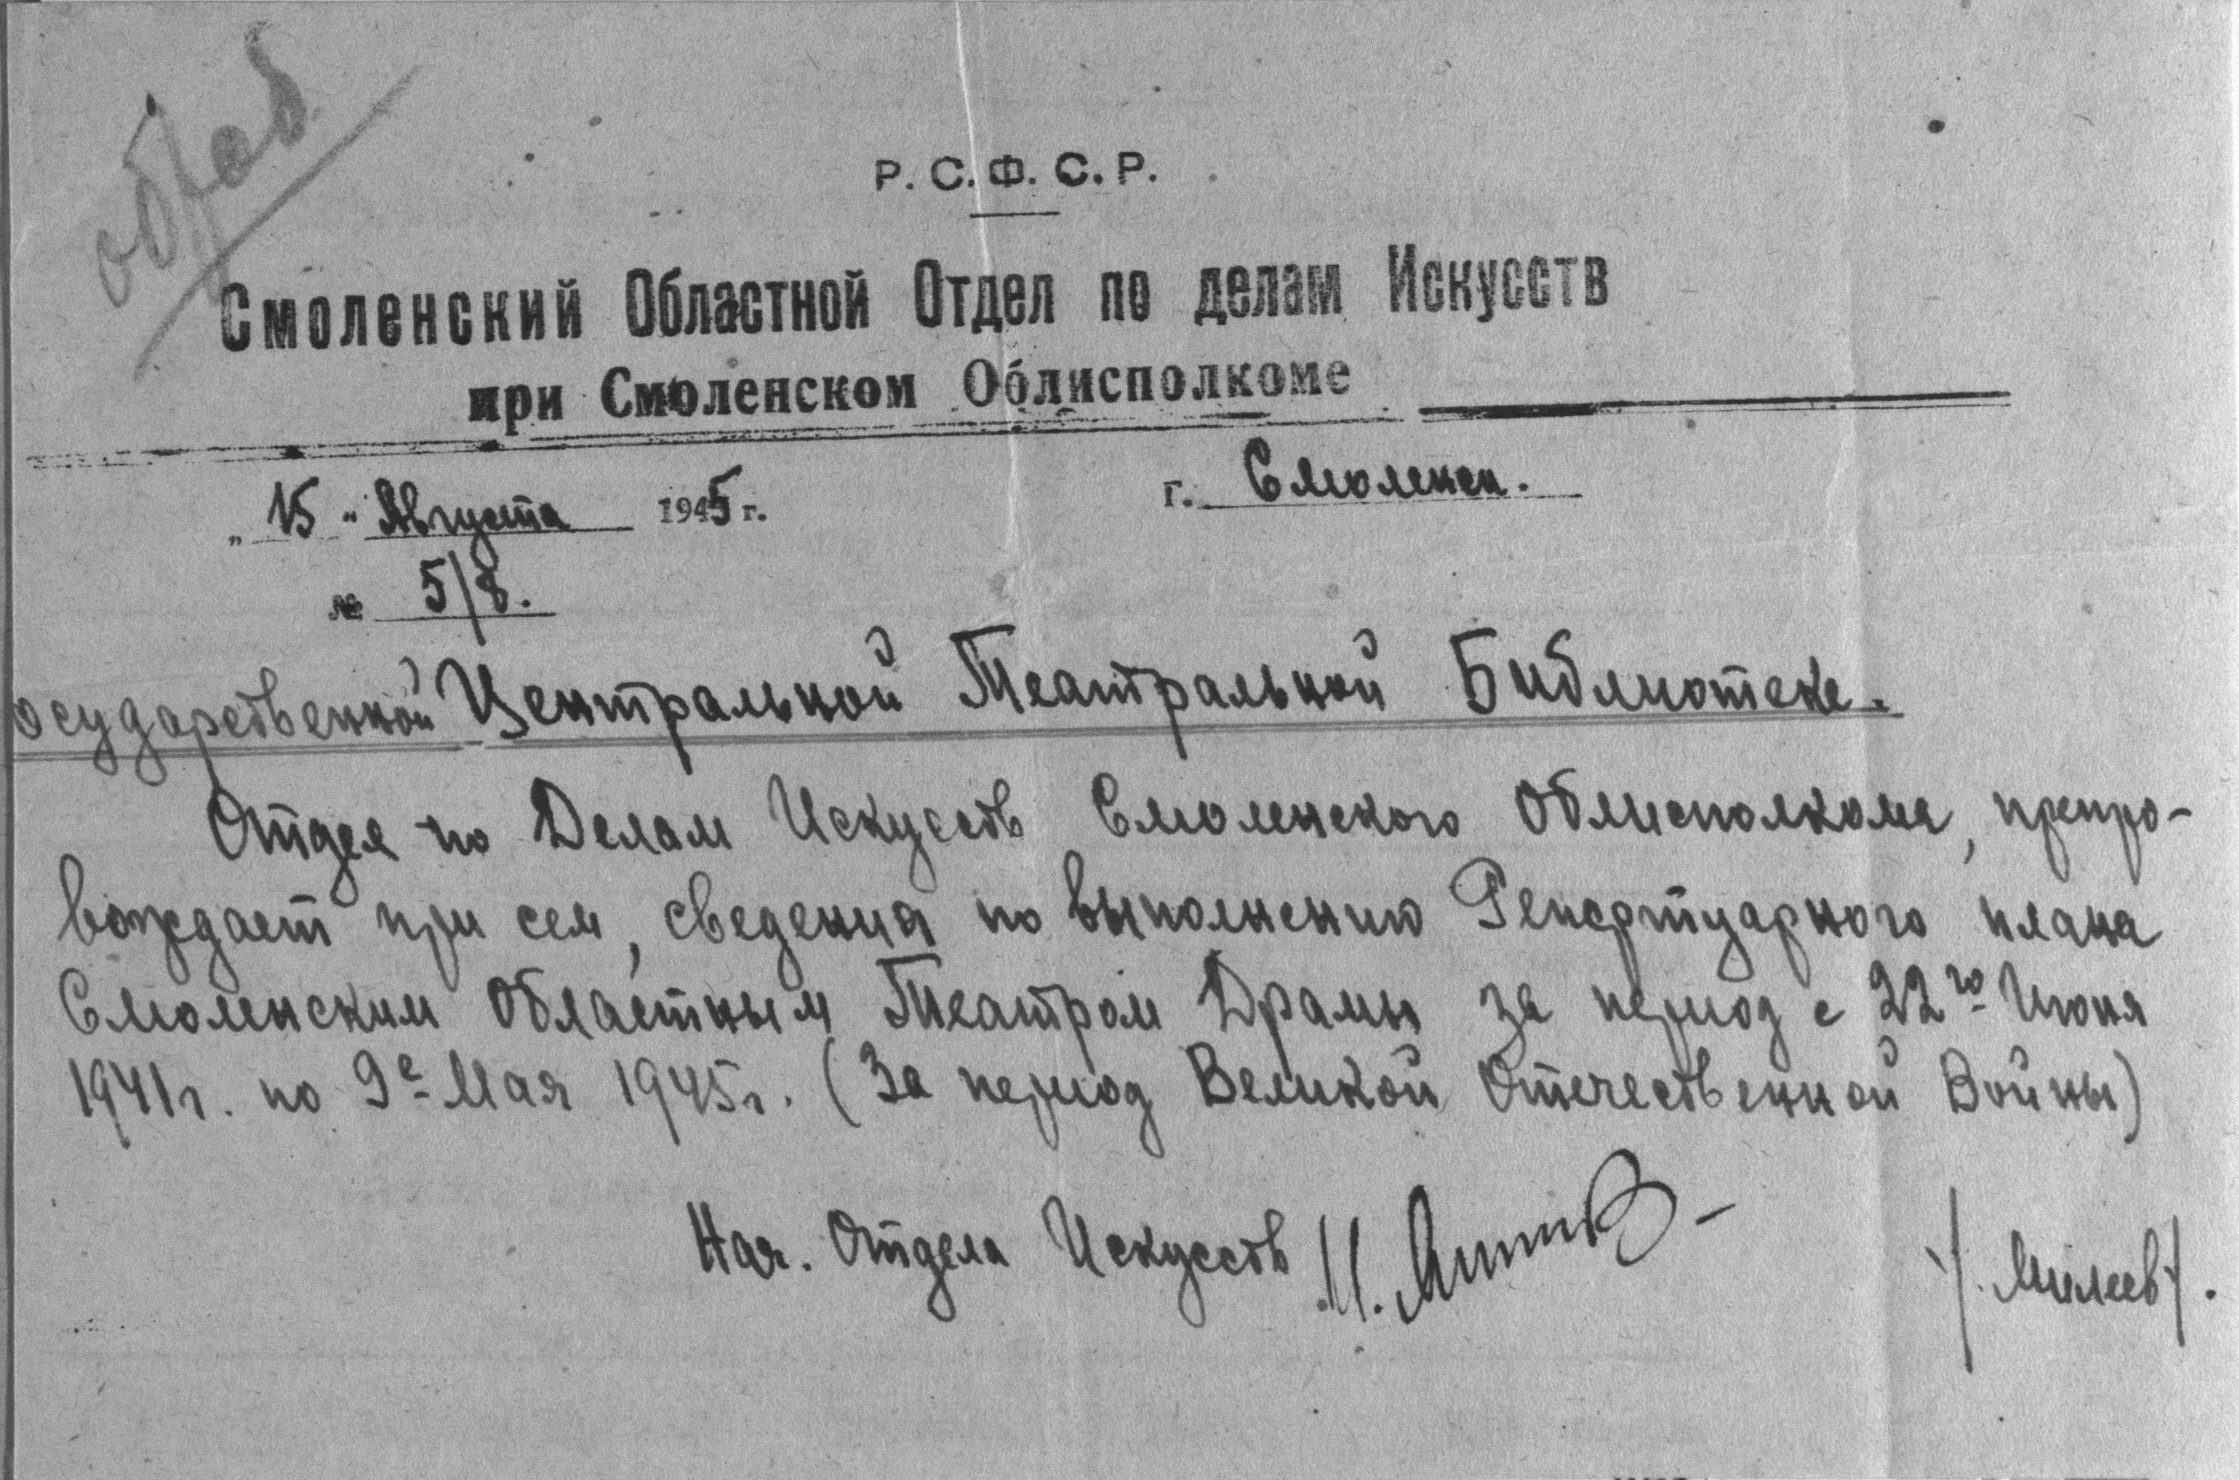 обраб
Р. С. Ф. С. Р.
Смоленский Областной Отдел по делам Искусств
при Смоленском Облисполкоме
„ 15 " Августа 1945 г. г. Смоленск.
№ 5/8.
осударственной Центральной Театральной Библиотеке.
Отдел по Делам Искусств Смоленского Облисполкома, препро-
вождает при сем, сведения по выполнению Репертуарного плана
Смоленским Областным Театром Драмы за период с 22го Июня
1941г. по 9е Мая 1945г. (За период Великой Отечественной Войны)
Нач. Отдела Искусств /Милеев/.